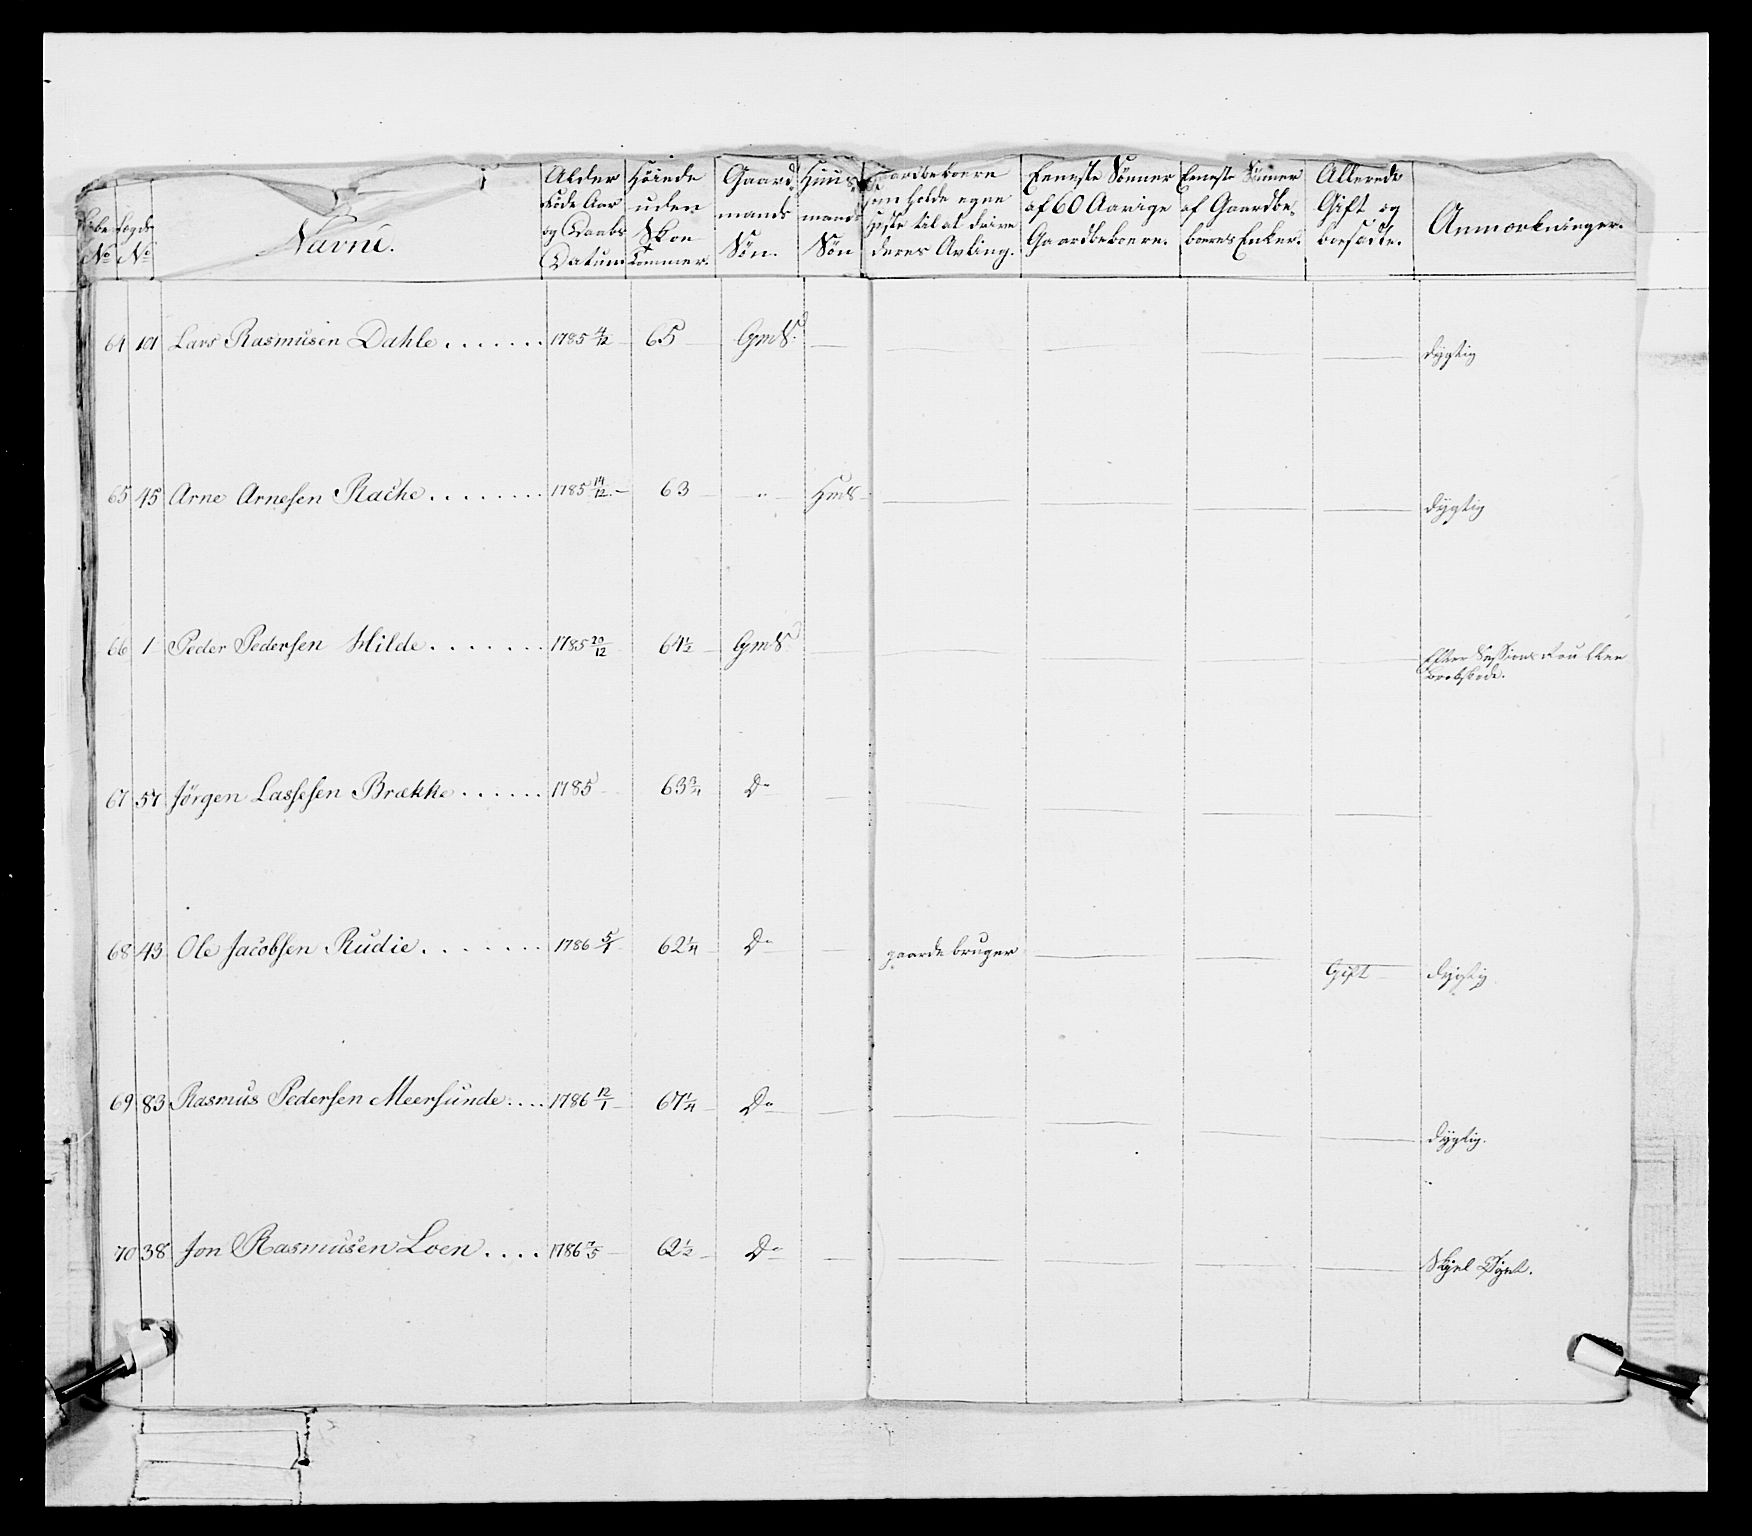 Løbe No
Lægds No
Navne.
Alder
Føde Aar
og Daabs
Datum
Høiede
uden
Skoe
Tommer.
Gaard
mands
Søn.
Huus
mands
Søn
Gaardbeboere
som holde egne
Heste til at drive
deres Avling.
Eeneste Sönner
af 60 Aarige
Gaardbeboere.
Eeneste Sönner
af Gaardbe-
boeres Enker.
Allerede
Gift og
boesadte.
Anmærkninger.
64 101 Lars Rasmusen Dahle . . . . . . . 1785 4/12 65 GmS. dygtig
65 45 Arne Arnesen Rache . . . . . . . . 1785 14/12 63 " HmS dygtig
66 1 Peder Pedersen Hilde . . . . . . . 1785 20/12 64 1/2 GmS Efter Sessions Roullen
67 57 Jørgen Lassesen Brække . . . . . . 1785 63 3/4 Do
68 43 Ole Jacobsen Rudie . . . . . . . 1786 5/1 62 1/4 Do gaardebruger Gift dygtig
69 83 Rasmus Pedersen Meersunde . . . . 1786 12/1 67 1/4 Do dygtig.
70 38 Jon Rasmusen Loen . . . . 1786 7/5 62 1/2 Do